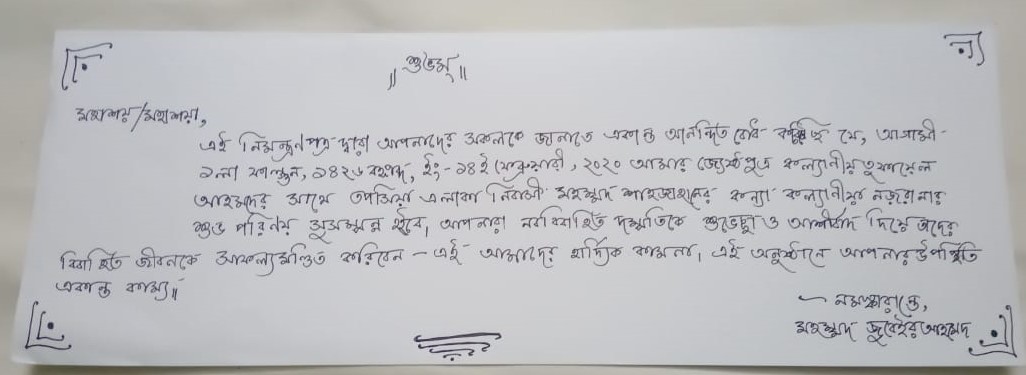 ॥ শুভম্ ॥
মহাশয়/মহাশয়া,
এই নিমন্ত্রণপত্র দ্বারা আপনাদের সকলকে জানাতে একান্ত আনন্দিত বোধ করছি যে, আগামী
১লা ফাল্গুন, ১৪২৬ বঙ্গাব্দ, ইং- ১৪ই ফেব্রুয়ারী, ২০২০ আমার জ্যেষ্ঠপুত্র কল্যাণীয় তুফায়েল
আহমেদের সাথে তপসিয়া এলাকা নিবাসী মহম্মদ শাহজাহানের কন্যা কল্যাণীয়া নজরানার
শুভ পরিণয় সুসম্পন্ন হইবে, আপনারা নববিবাহিত দম্পতিকে শুভেচ্ছা ও আশীর্বাদ দিয়ে তাদের
বিবাহিত জীবনকে সাফল্যমন্ডিত করিবেন - এই আমাদের হার্দিক কামনা, এই অনুষ্ঠানে আপনার উপস্থিতি
একান্ত কাম্য॥
- নমস্কারান্তে,
মহম্মদ জুবেইর আহমেদ